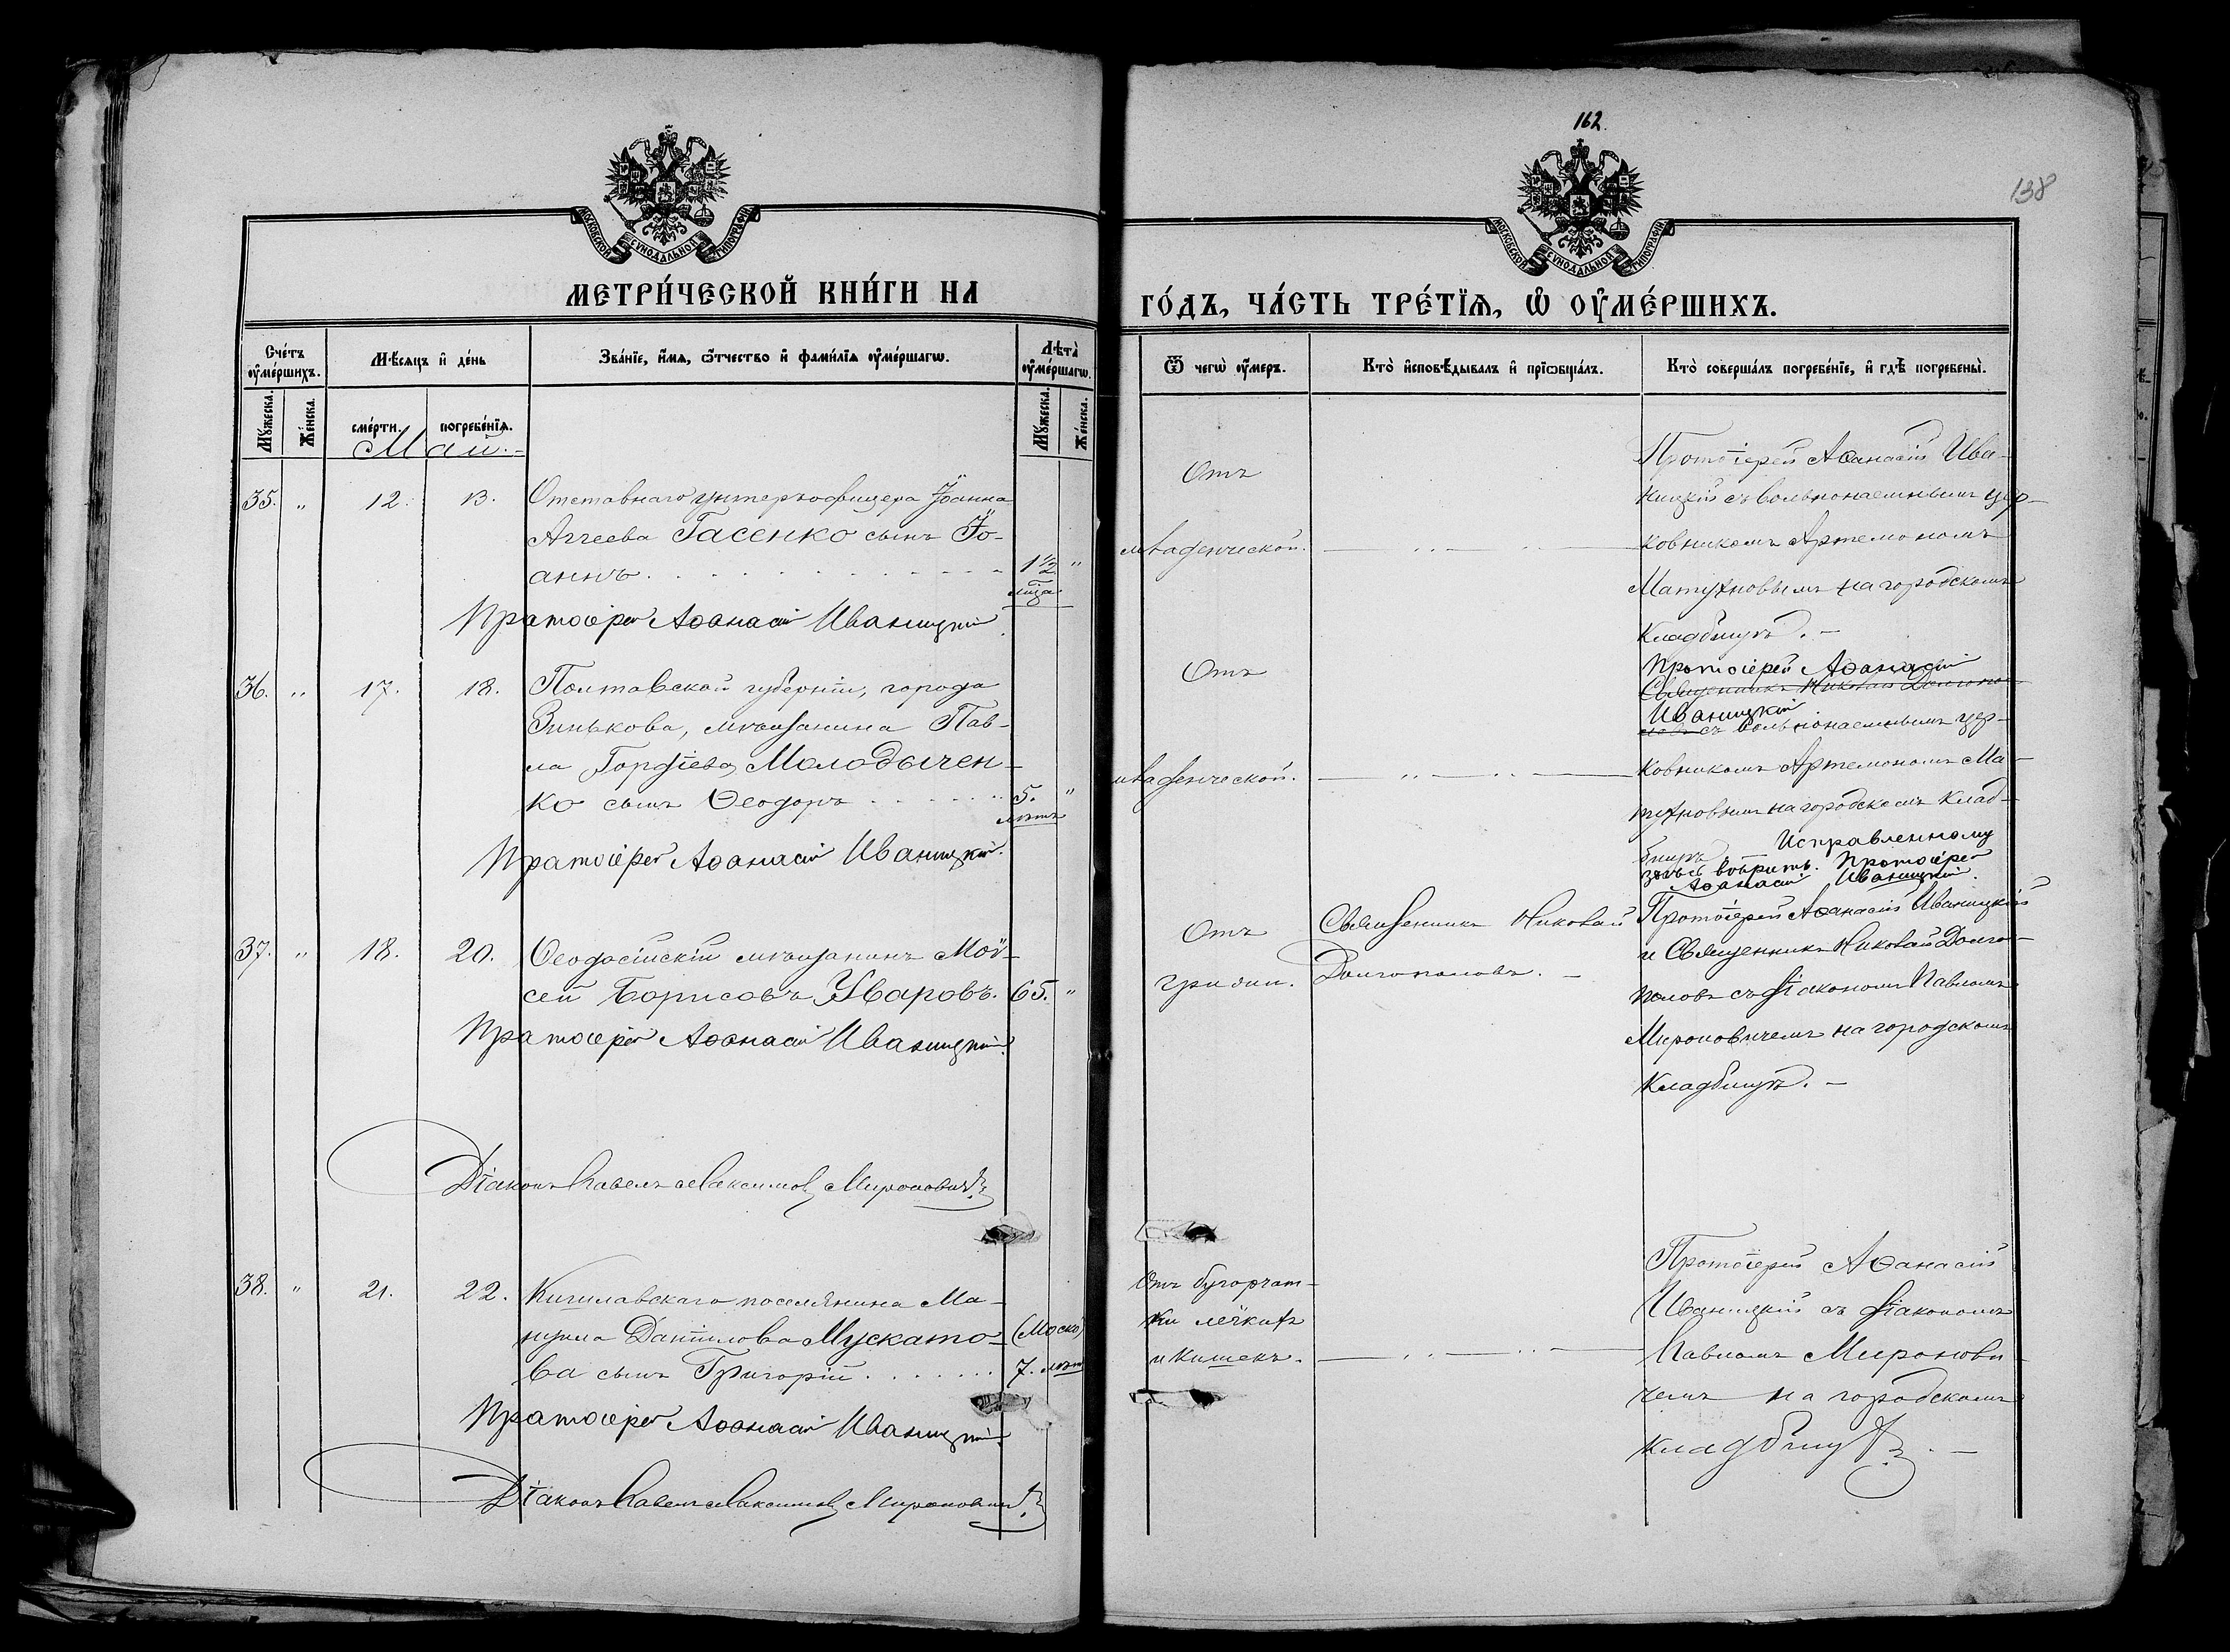 162.
138
МОСКОВСКОЙ СѴНОДАЛЬНОЙ ТИПОГРАФІИ
МОСКОВСКОЙ СѴНОДАЛЬНОЙ ТИПОГРАФІИ
МЕТРИ́ЧЕСКОЙ КНИ́ГИ НА
ГО́ДЪ, ЧА́СТЬ ТРЕ́ТЇѦ, Ѡ҆ ОУ҆МЕ́РШИХЪ.
Сче́тъ оу҆ме́ршихъ.
Мꙋжеска.
Же́нска.
Мѣ́сѧцъ и҆ де́нь
сме́рти.
погребе́нїѧ.
Зва́нїе, и҆́мѧ, ѻ҆́тчество и҆ фами́лїѧ оу҆ме́ршагѡ.
Лѣта̀ оу҆ме́ршагѡ.
Мꙋжеска.
Же́нска.
Ѿ чегѡ̀ оу҆́меръ.
Кто̀ и҆сповѣ́дывалъ и҆ прїѡбща́лъ.
Кто̀ соверша́лъ погребе́нїе, и҆ гдѣ̀ погребены̀.
Май.
35. " 12. 13.
Отставнаго унтеръ-офицера Іоанна
Аггеева Гасенко сынъ Іо-
аннъ
1½ "
мца
Протоіерей Аѳанасій Иваницкій
Отъ
младенческой.
Протоіерей Аѳанасій Ива-
ницкій съ вольнонаемнымъ цер-
ковникомъ Артемономъ
Матухновымъ на городскомъ
кладбищѣ.
36. " 17. 18.
Полтавской губерніи, города
Зинькова, мѣщанина Пав-
ла Гордіева Молодычен-
ко сынъ Ѳеодоръ
5. "
лѣтъ
Протоіерей Аѳанасій Иваницкій.
Отъ
младенческой.
Протоіерей Аѳанасій
Священникъ Николай Долгопо-
Иваницкій
ловъ съ вольнонаемнымъ цер-
ковникомъ Артемономъ Ма-
тухновымъ на городскомъ клад-
бищѣ Исправленному
здѣсь вѣрить. Протоіерей
Аѳанасій Иваницкій.
37. " 18. 20.
Ѳеодосійскій мѣщанинъ Мои-
сей Борисовъ Уваровъ. 65. "
Протоіерей Аѳанасій Иваницкій.
Отъ
грижи.
Священникъ Николай
Долгополовъ.
Протоіерей Аѳанасій Иваницкій
и Священникъ Николай Долго-
половъ съ діакономъ Павломъ
Мироновичемъ на городскомъ
кладбищѣ.
Діаконъ Павелъ Максимов Мироновичъ
38. " 21. 22.
поселянина Ма-
нуила Даніилова Мускато-
(Моско)
ва сынъ Григорій
7. лѣт
Протоіерей Аѳанасій Иваницкій.
Діаконъ Павелъ Максимов Мироновичъ
Отъ бугорчат-
ки лёгкихъ
и кишекъ.
Протоіерей Аѳанасій
Иваницкій съ діакономъ
Павломъ Миронови-
чемъ на городскомъ
кладбищѣ.